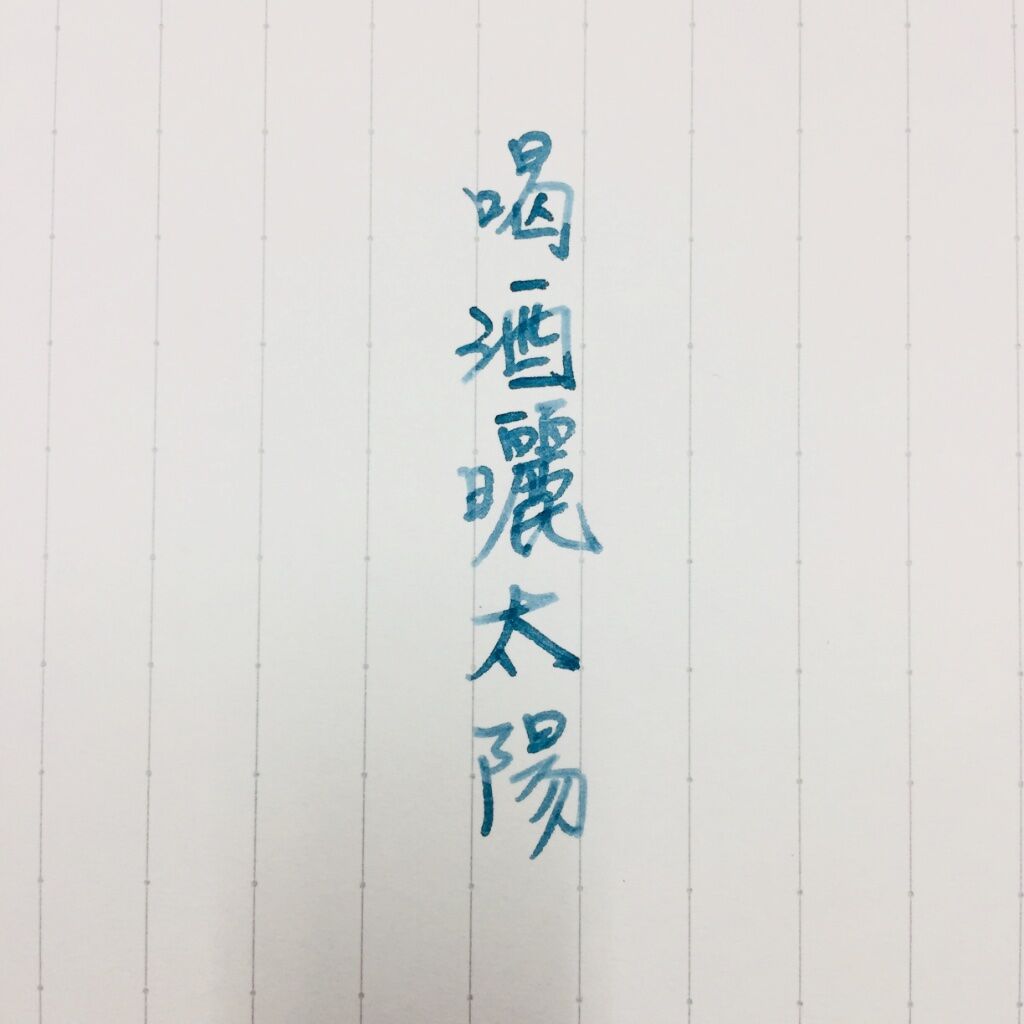 喝酒曬太陽